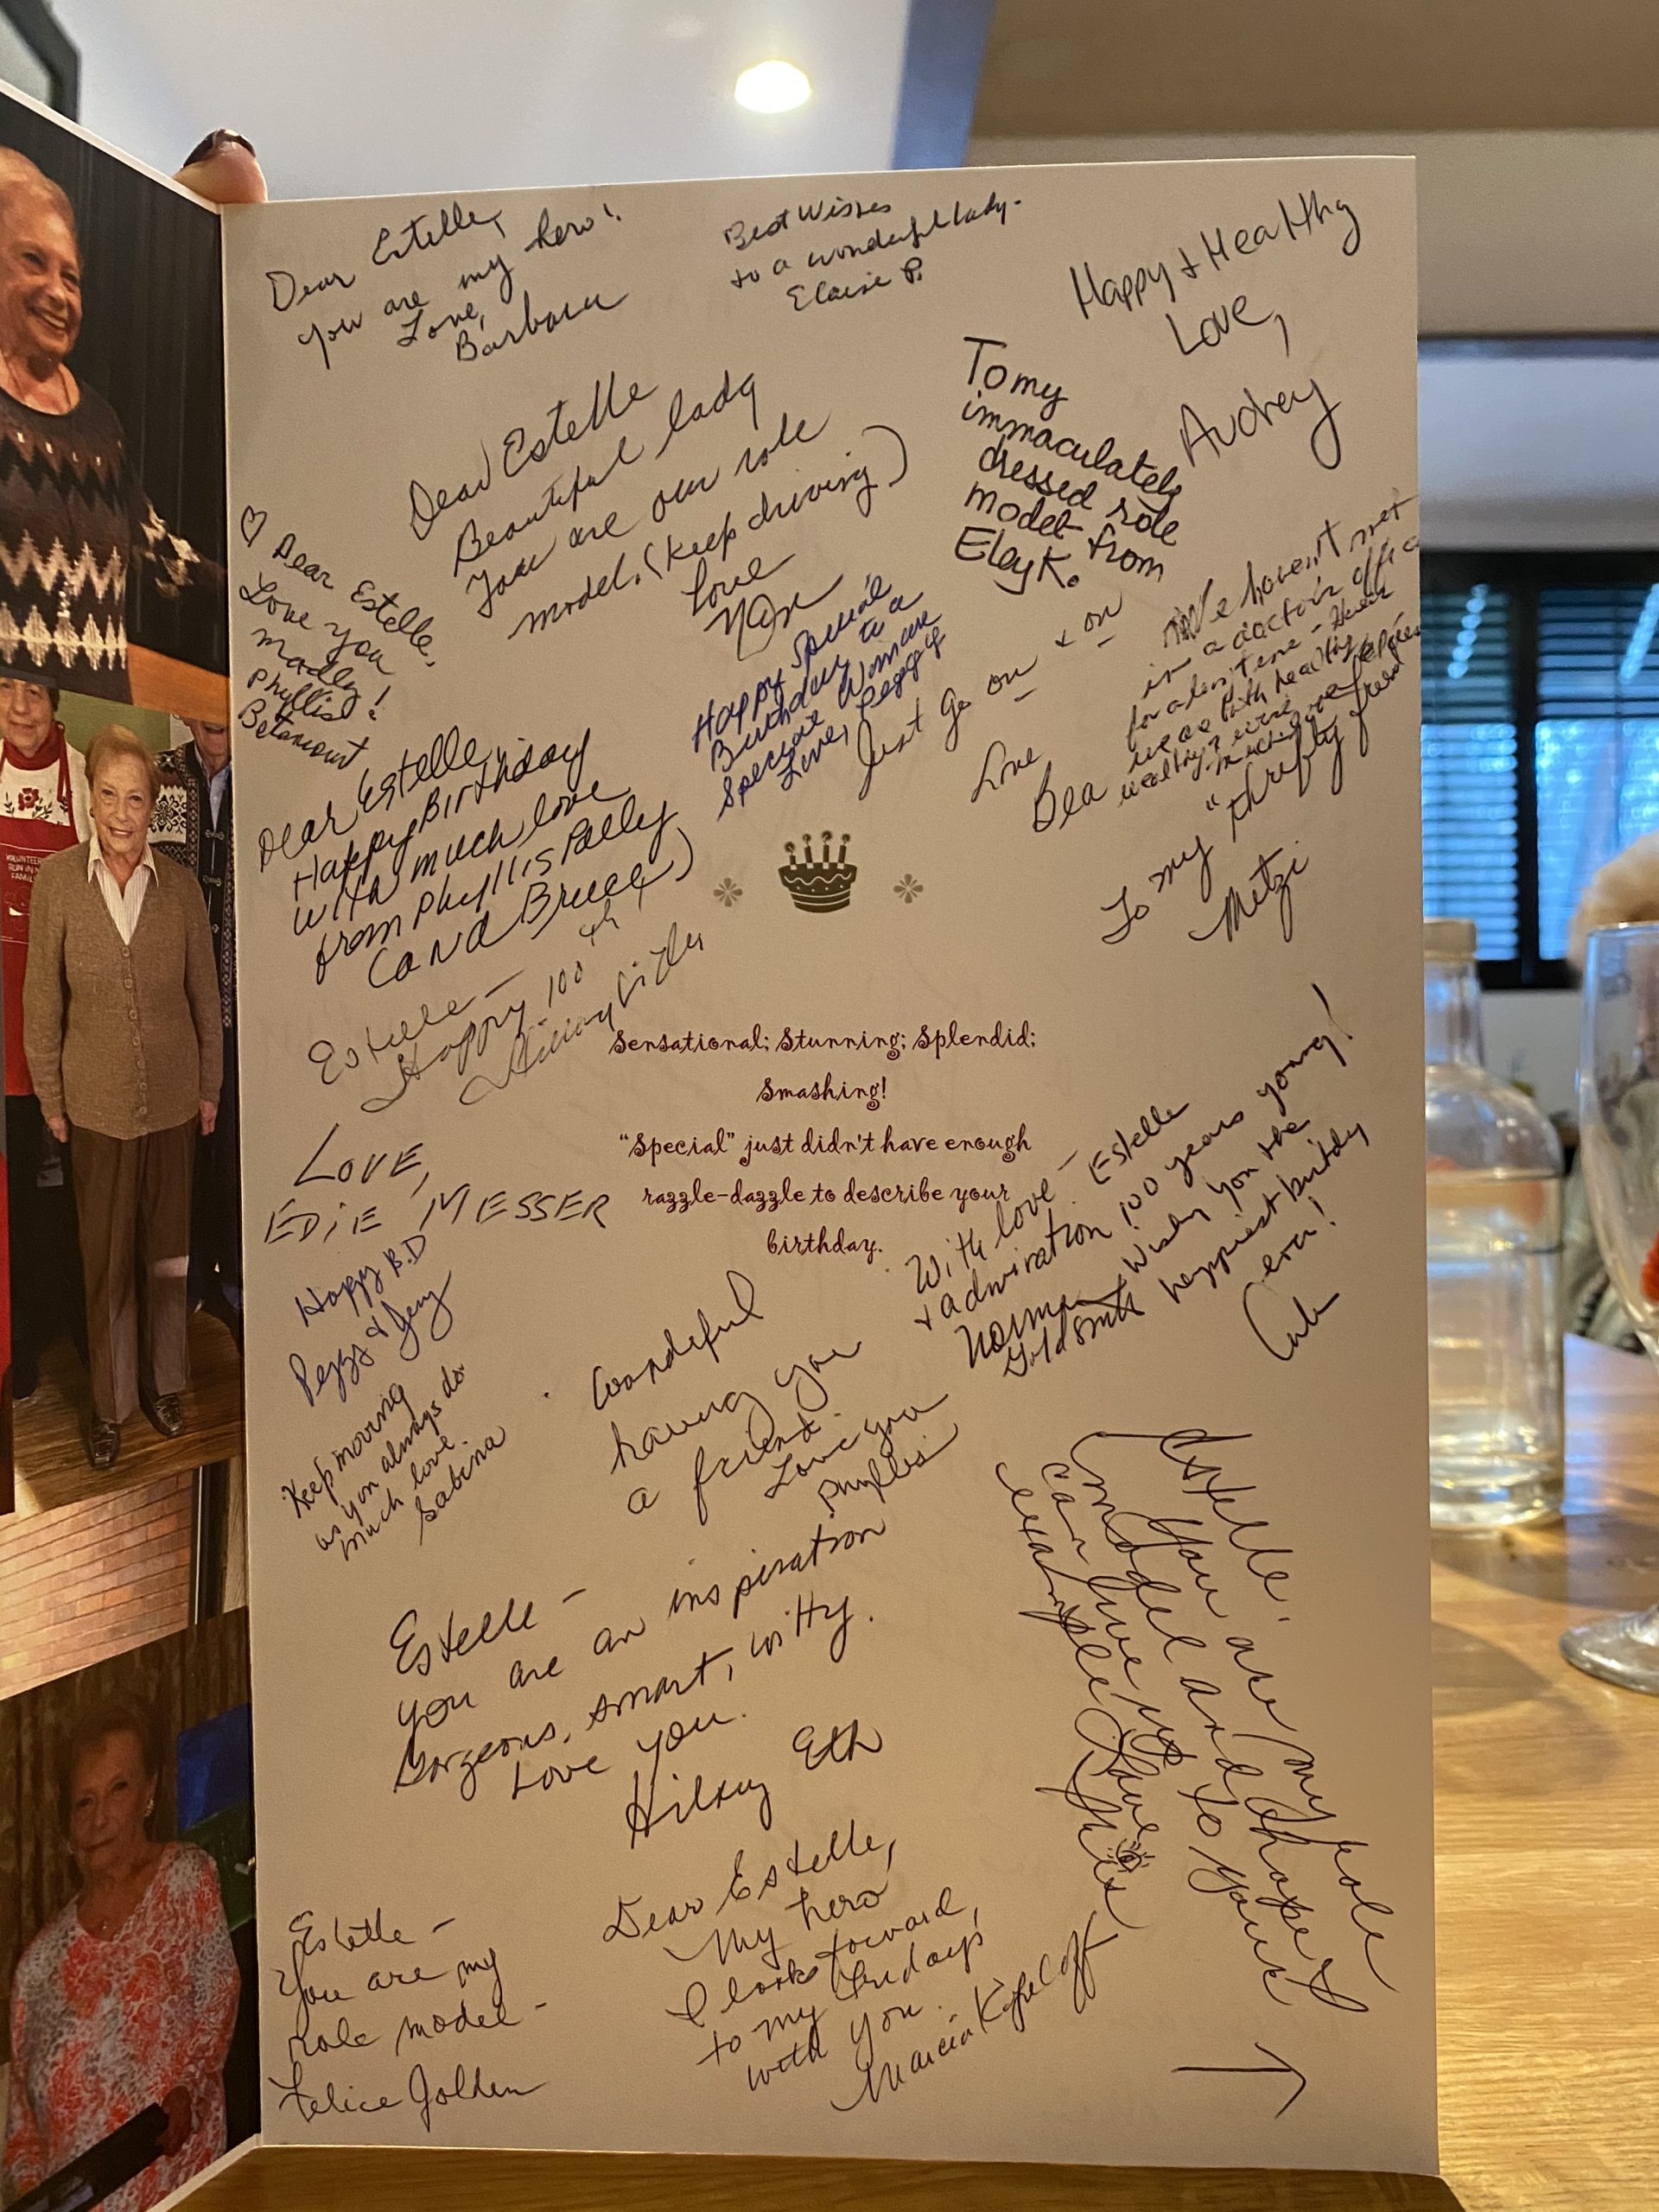 Dear Estelle,
you are my hero!
Love,
Barbara
Best Wishes
to a wonderful lady.
Elaine P.
Happy + Healthy
Love,
Audrey
Dear Estelle
Beautiful lady
You are our role
model. (Keep driving)
Love
To my
immaculately
dressed role
model from
Elay K.
♡ Dear Estelle,
Love you
madly!
Phyllis
Betancourt
Happy Special
Birthday to a
Special Woman
Love, Peggy
Just go on + on
Love
Bea
We haven't met
in a doctor's office
for a long time
we are both healthy
wealthy?
To my "thrifty friend
Mitzi
Dear Estelle,
Happy Birthday
with much love
from Phyllis Polly
(and Bruce)
Estelle –
Happy 100th
VOLUNTEER
RUN IN
FAMIL
Sensational; Stunning; Splendid;
Smashing!
"Special" just didn't have enough
razzle-dazzle to describe your
birthday.
Love,
Edie Messer
Happy B.D
Peggy & Jerry
Keep moving
as you always do
much love.
Sabina
With love – Estelle
+ admiration
Norma
Goldsmith
100 years young!
Wishing you the
happiest birthday
ever!
Wonderful
having you
a friend.
Love you
Phyllis
Estelle –
you are an inspiration
Gorgeous, smart, witty.
Love you.
Hilary Eth
Estelle.
You are my role
model and I hope I
can live up to your
example. Love
Estelle –
You are my
role model –
Felice Golden
Dear Estelle,
My hero
I look forward,
to my Fridays
with you.
Marcia Kopeloff
→